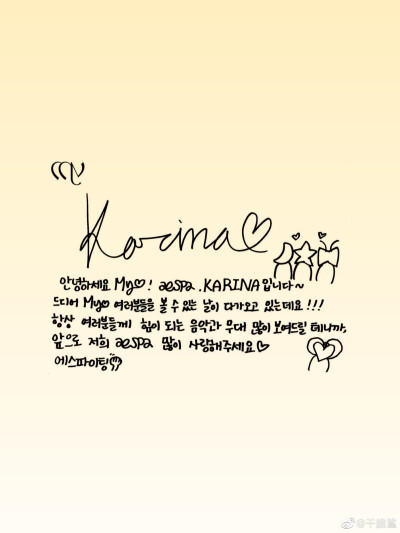 My
Karina♡
안녕하세요 My♡! aespa.KARINA입니다~
드디어 My♡ 여러분들을 볼 수 있는 날이 다가오고 있는데요!!!
항상 여러분들께 힘이 되는 음악과 무대 많이 보여드릴 테니까,
앞으로 저희 aespa 많이 사랑해주세요♡
에스파이팅